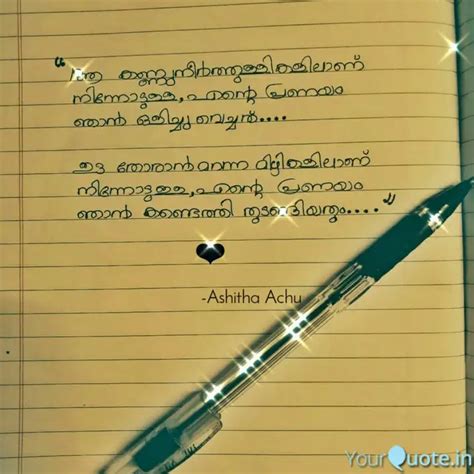 “ഈ കണ്ണുനീർത്തുള്ളികളിലാണ്
നിന്നോടുള്ള, എന്റെ പ്രണയം
ഞാൻ ഒളിച്ചു വെച്ചത്....
തോരാൻ മറന്ന മിഴികളിലാണ്
നിന്നോടുള്ള, എന്റെ പ്രണയം
ഞാൻ കണ്ടെത്തി തുടങ്ങിയതും....”
-Ashitha Achu
YourQuote.in